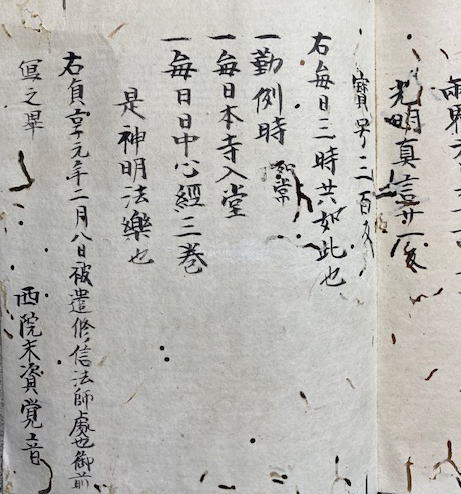 光明真言廿一反
寶号三百反
右毎日三時共如此也
一勤例時 如常
一毎日本寺入堂
一毎日日中心經三巻
是神明法樂也
右貞享元年二月八日被遣修信法師處也御前
西院末資覚音
写之畢